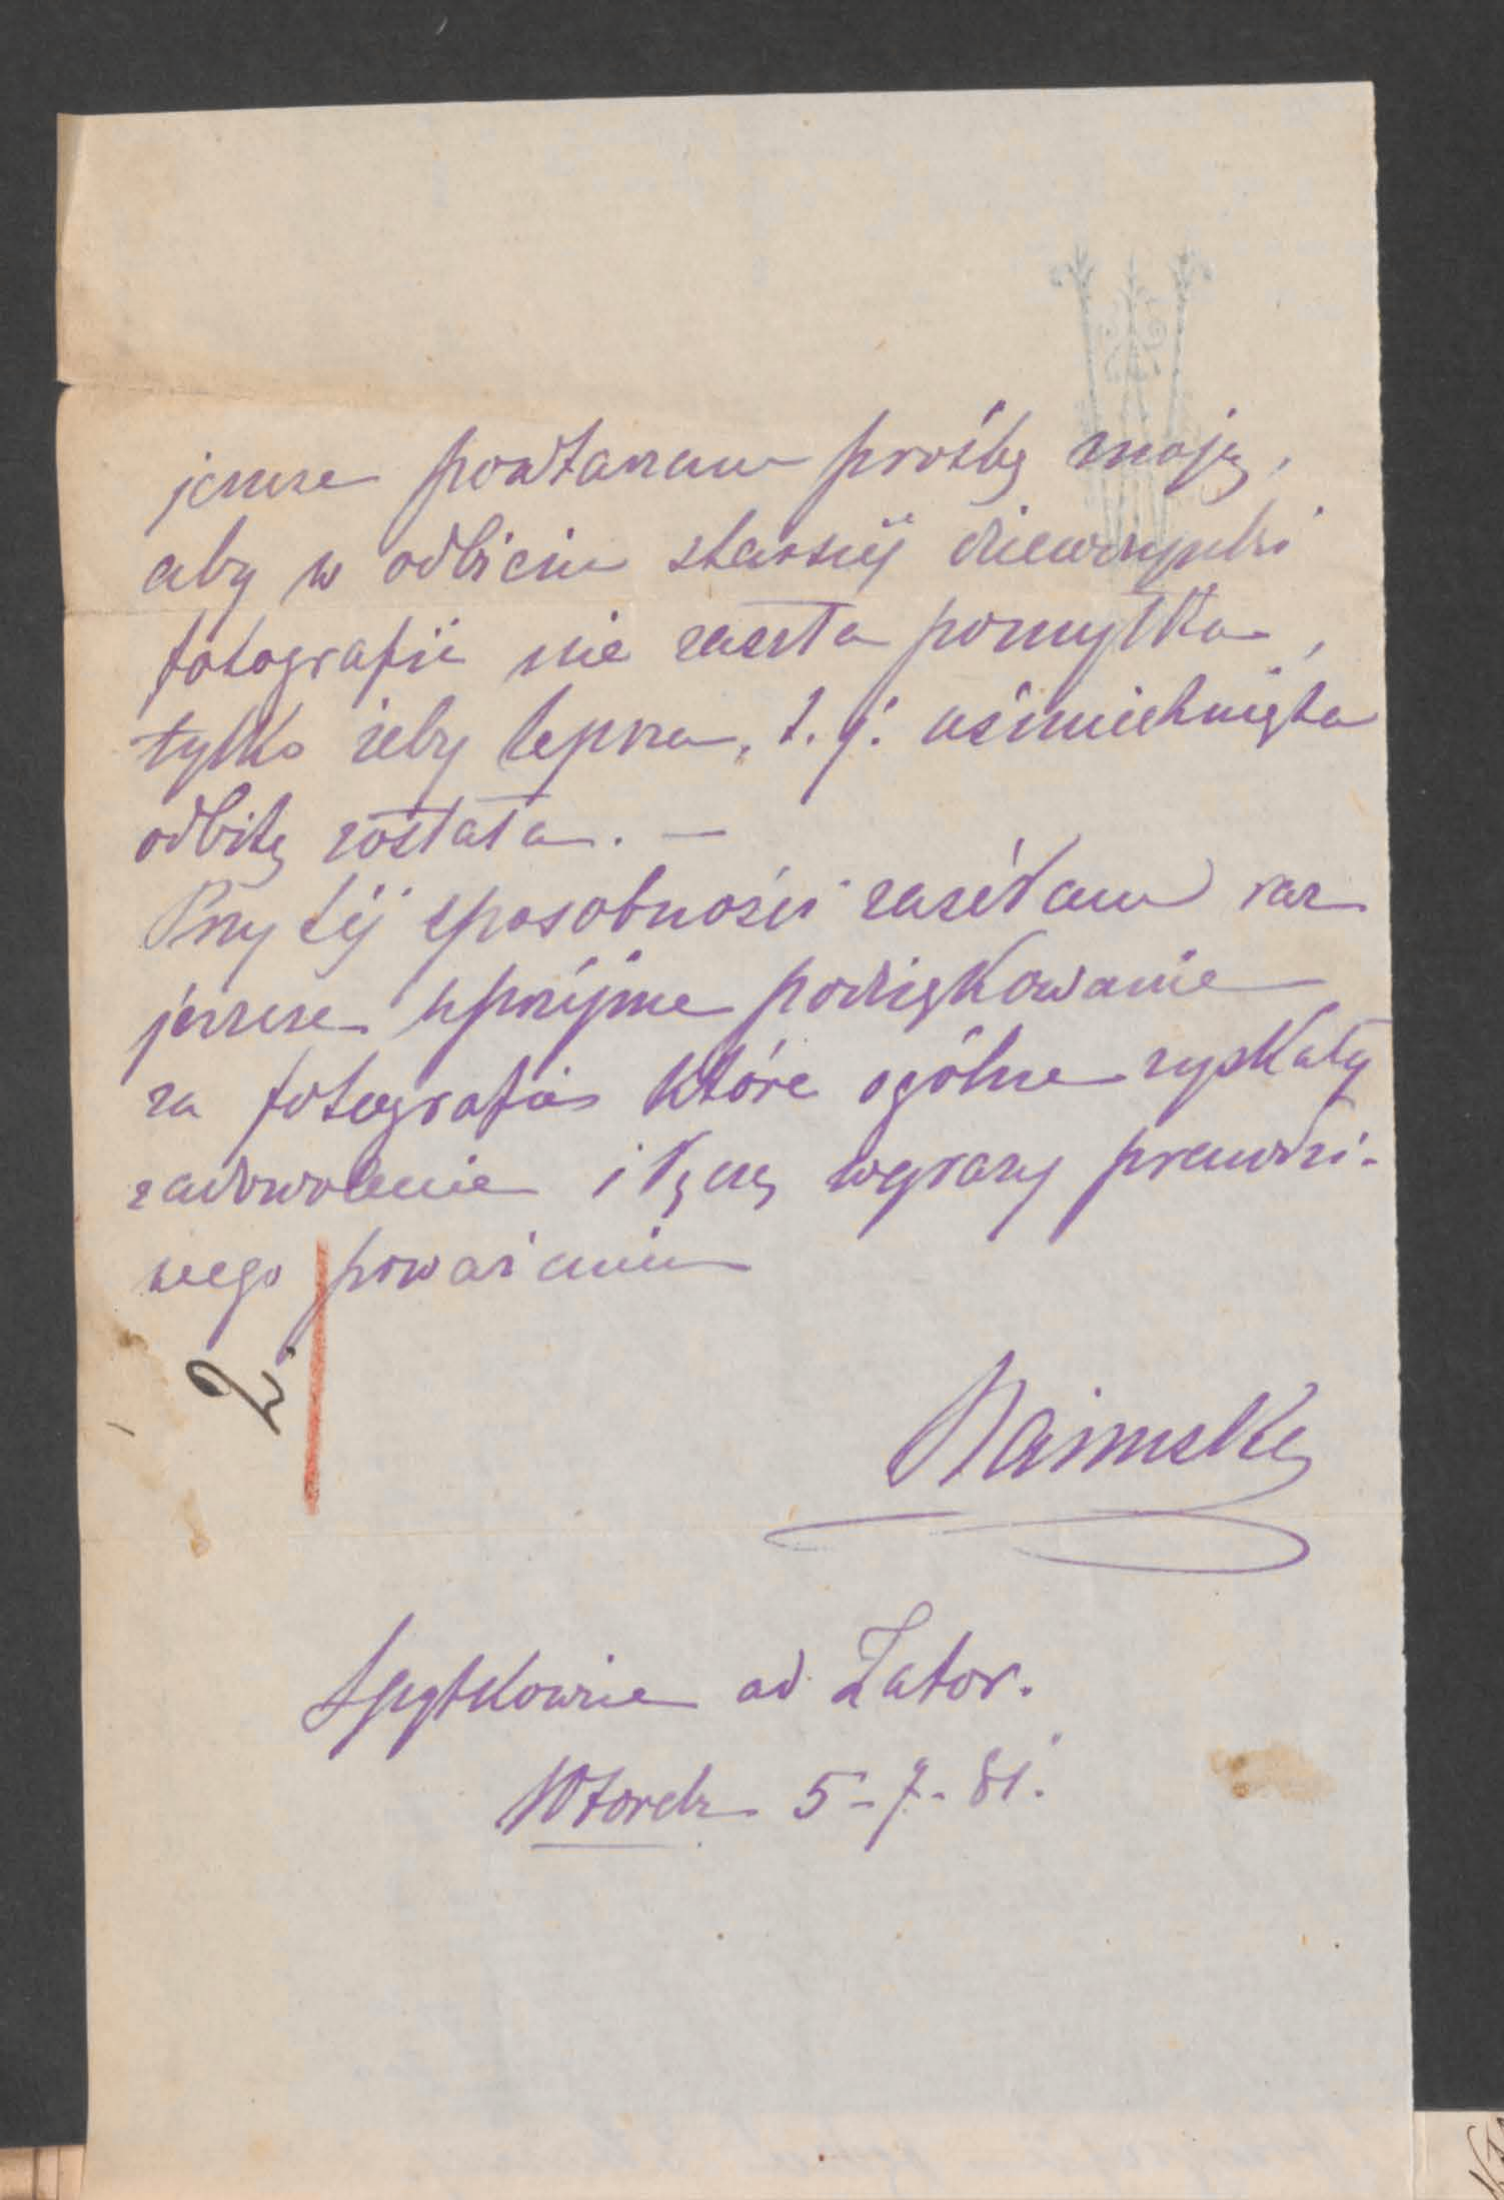 jeszcze powtarzam prośbę moję,
aby w odbiciu starszéj dziewczynki
fotografii nie zaszła pomyłka,
tylko żeby lepsza, t. j. uśmiechnięta
odbitą została. —
Przy téj sposobności zaséłam raz
jeszcze uprzéjme podziękowanie
za fotografie które ogólne zyskały
zadowolenie i łączę wyrazy prawdzi-
wego poważania
2.
Spytkowice ad Zator.
Wtorek 5-7-81.